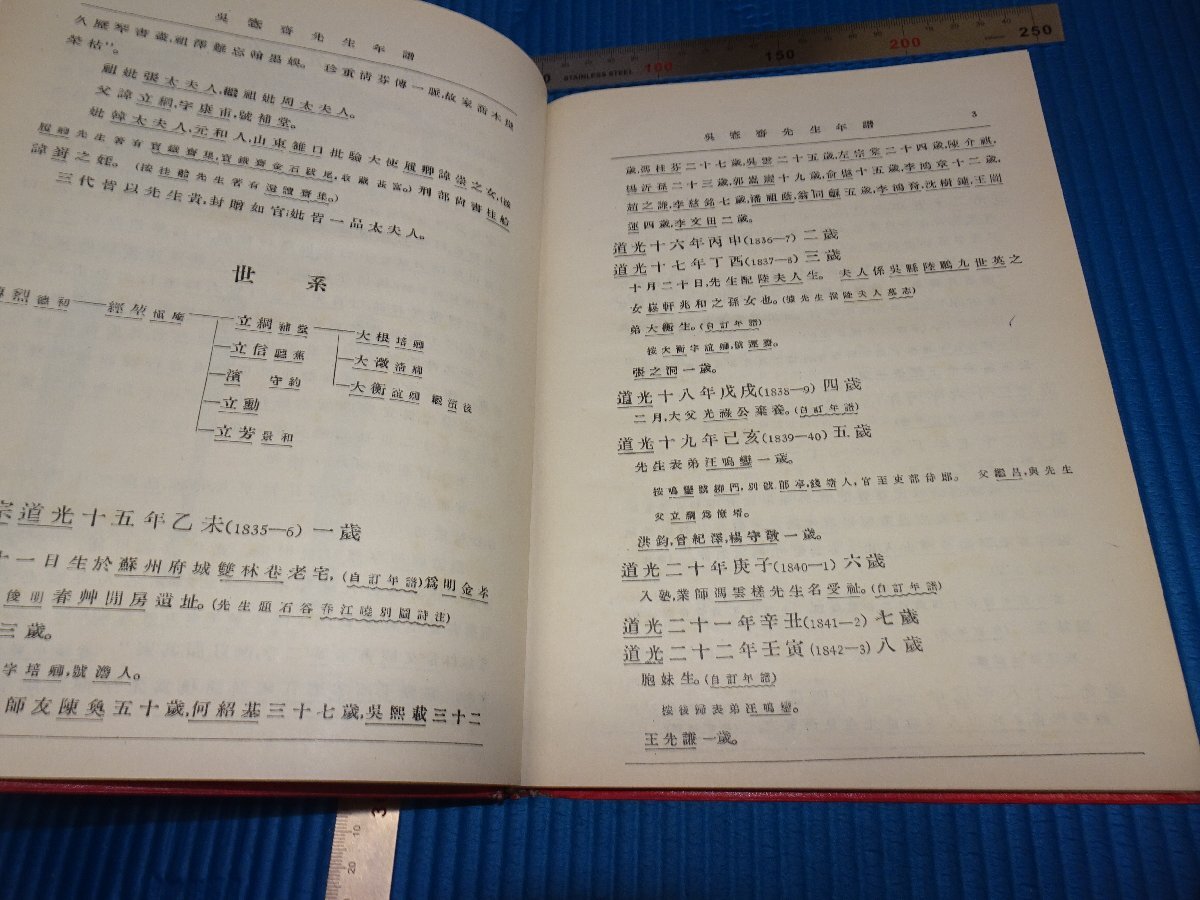 吳愙齋先生年譜
久歷琴書盡,祖澤難忘翰墨娛。 珍重清芬傳一脈,故家喬木規
榮枯"。
祖妣張太夫人,繼祖妣周太夫人。
父諱立綱,字康甫,號補堂。
妣韓太夫人,元和人,山東雒口批驗大使履卿諱崇之女,(按
履卿先生著有寶鐵齋集,寶鐵齋金石跋尾,收藏甚富。)刑部尚書桂舲
諱崶之姪。(按桂舲先生著有還讀齋集。)
三代皆以先生貴,封贈如官;妣皆一品太夫人。
世 系
烈 德初
經堃 愼庵
立綱 補堂
立信 聽蕉
濱 守約
立勳
立芳 景和
大根 培卿
大澂 清卿
大衡 誼卿 嗣濱後
宗道光十五年乙未(1835—6) 一歲
十一日生於蘇州府城雙林巷老宅,(自訂年譜)爲明金孝
俊明春艸閒房遺址。(先生題石谷春江曉別圖詩注)
三歲。
字培卿,號澹人。
師友陳奐五十歲,何紹基三十七歲,吳熙載三十二
吳愙齋先生年譜 3
歲,馮桂芬二十七歲,吳雲二十五歲,左宗棠二十四歲,陳介祺,
楊沂孫二十三歲,郭嵩燾十九歲,俞樾十五歲,李鴻章十二歲,
趙之謙,李慈銘七歲,潘祖蔭,翁同龢五歲,李鴻裔,沈樹鏞,王闓
運四歲,李文田二歲。
道光十六年丙申(1836—7) 二歲
道光十七年丁酉(1837—8) 三歲
十月二十日,先生配陸夫人生。 夫人係吳縣陸鵬九世英之
女,崧軒兆和之孫女也。(據先生撰陸夫人墓志)
弟大衡生。(自訂年譜)
按大衡字誼卿,號運齋。
張之洞一歲。
道光十八年戊戌(1838—9) 四歲
二月,大父光祿公棄養。(自訂年譜)
道光十九年己亥(1839—40) 五歲
先生表弟汪鳴鑾一歲。
按鳴鑾號柳門,別號郋亭,錢塘人,官至吏部侍郎。 父繼昌,與先生
父立綱爲僚壻。
洪鈞,曾紀澤,楊守敬一歲。
道光二十年庚子(1840—1) 六歲
入塾,業師馮雲槎先生名受祉。(自訂年譜)
道光二十一年辛丑(1841—2) 七歲
道光二十二年壬寅(1842—3) 八歲
胞妹生。(自訂年譜)
按後歸表弟汪鳴鑾。
王先謙一歲。
STAINLESS STEEL
100
150
200
250